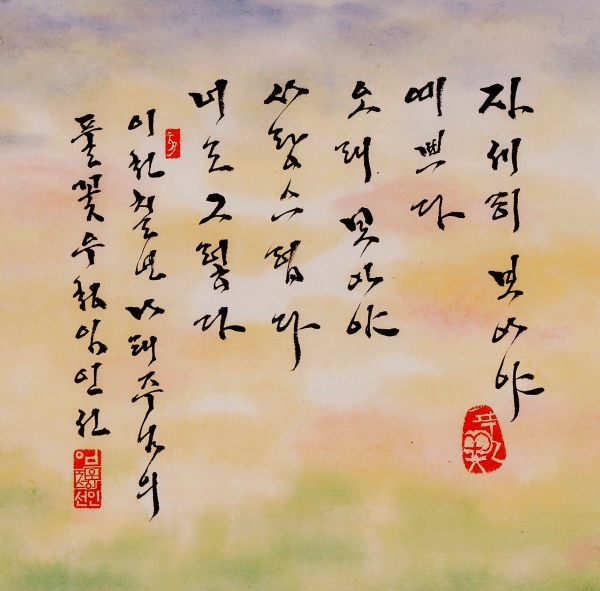 자세히 보아야
예쁘다
오래 보아야
사랑스럽다
너도 그렇다
이천칠년 나태주님의
풀꽃 우천 임인선